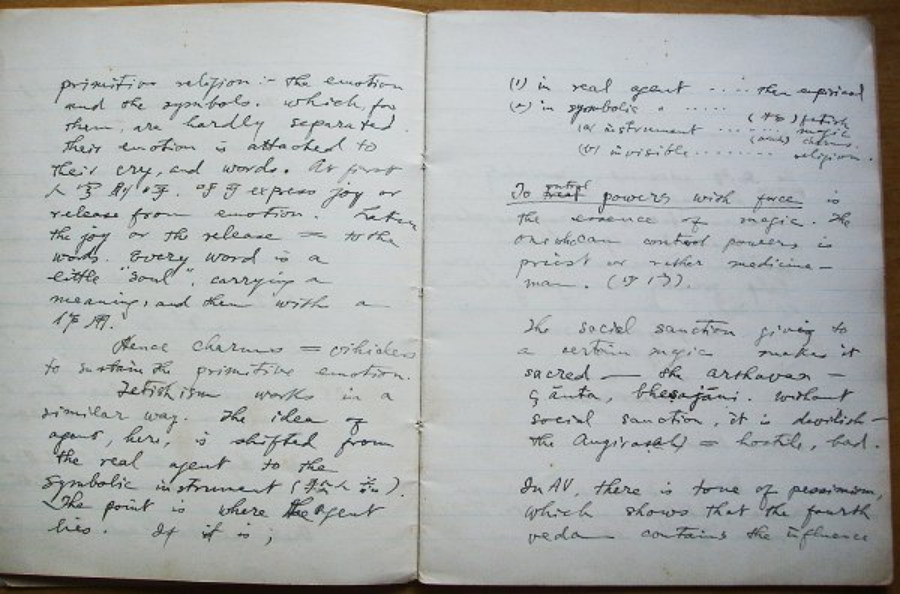 primitive religion :- the emotion
and the symbols. which, for
them, are hardly separated.
their emotion is attached to
their cry, and words. At first
express joy or
release from emotion. Later
the joy or the release = to the
words. Every word is a
little "soul", carrying a
meaning, and them with a
作用.
Hence charms = vehicles
to sustain the primitive emotion.
Fetishism works in a
similar way. The idea of
agent, here, is shifted from
the real agent to the
symbolic instrument
The point is where the agent
lies. If it is ;
(1) in real agent ..... then empirical
(2) in symbolic " .....
(a) instrument ....... fetish
magic
charms.
(b) invisible ........ religion.
To control powers with force is
the essence of magic. The
one who can control powers is
priest or rather medicine-
man.
The social sanction giving to
a certain magic makes it
sacred — the atharvan —
çānta, bhesajāni. without
social sanction, it is devilish -
the Angirasah = hostile, bad.
In AV, there is tone of pessimism,
which shows that the fourth
veda contains the influence